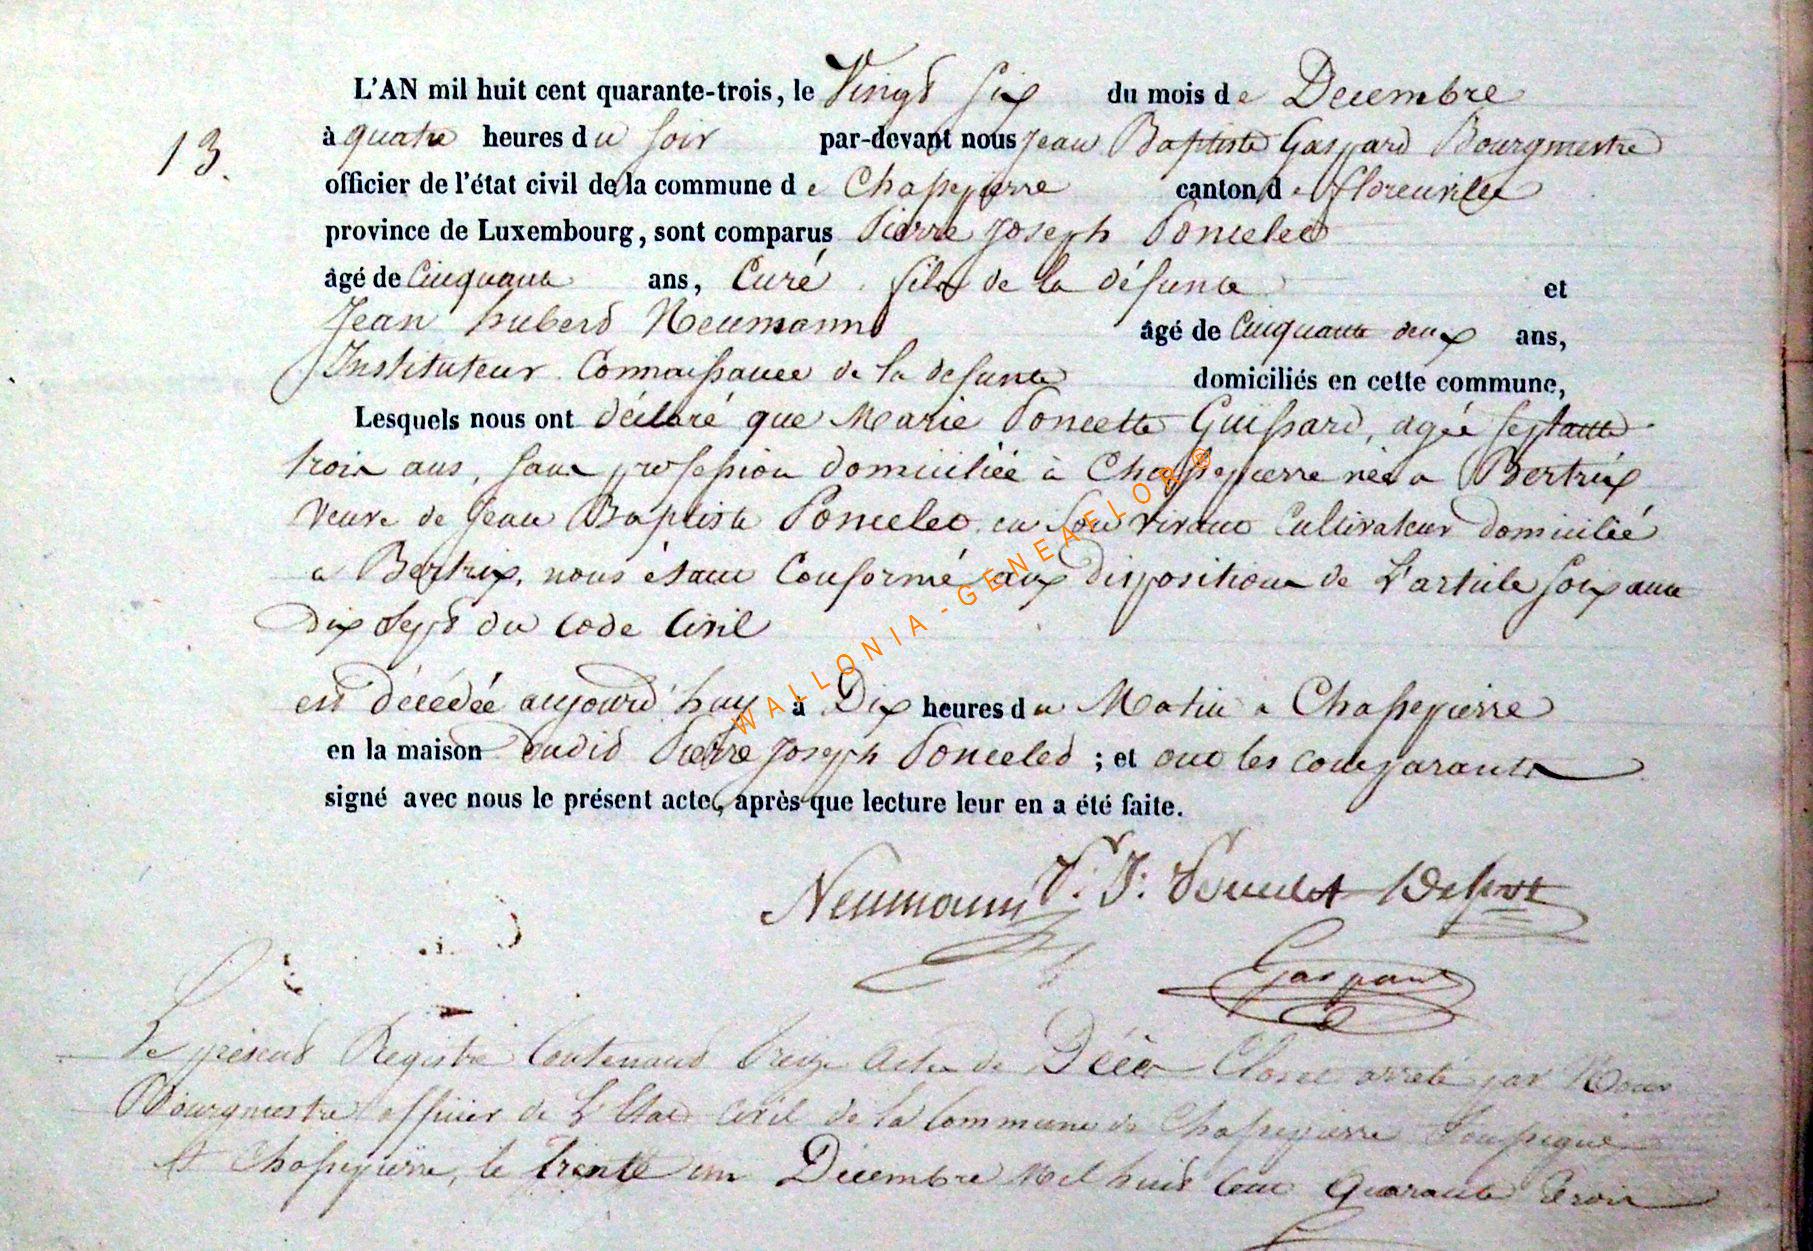 L'AN mil huit cent quarante-trois, le Vingt Six du mois de Decembre
13.
à quatre heures du soir par-devant nous Jean Baptiste Gaspard Bourgmestre
officier de l'état civil de la commune de Chassepierre canton de florenville
province de Luxembourg, sont comparus Pierre Joseph Poncelet
âgé de Cinquante ans, Curé fils de la défunte et
Jean hubert Neumann âgé de Cinquante deux ans,
Instituteur Connaissance de la defunte domiciliés en cette commune,
Lesquels nous ont déclaré que Marie Poncette Guissard, agée septante
trois ans, sans profession domiciliée à Chassepierre née a Bertrix
Veuve de Jean Baptiste Poncelet en son vivant Cultivateur domicilié
a Bertrix, nous étant Conformé aux dispositions de L'article soixante
Dix Sept du code Civil
est décédée aujourd'huy à Dix heures du Matin a Chassepierre
en la maison dudit Pierre Joseph Poncelet ; et ont les comparants
signé avec nous le présent acte, après que lecture leur en a été faite.
Neumann P. J. Poncelet
Gaspard
Le présent Registre Contenant treize Actes de Décès Clos et arreté par Nous
Bourgmestre officier de L'Etat Civil de la Commune de Chassepierre Soussigné
A Chassepierre, le trente un Décembre Mil huit Cent Quarante trois
WALLONIA-GENEAFLOR©